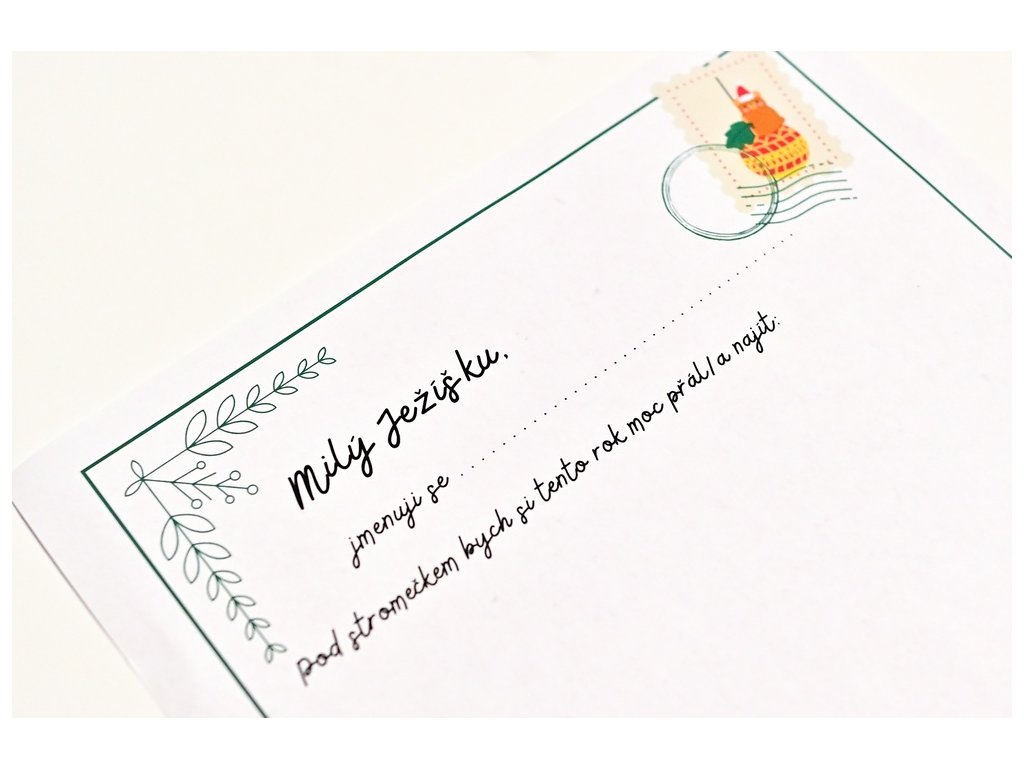 Milý Ježíšku,
jmenuji se ..............................
Pod stromečkem bych si tento rok moc přál/a najít: